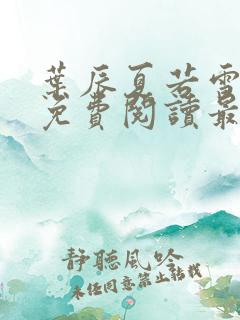 葉辰夏若雪
免費閱讀最
靜聽風吟
未經同意禁止轉載